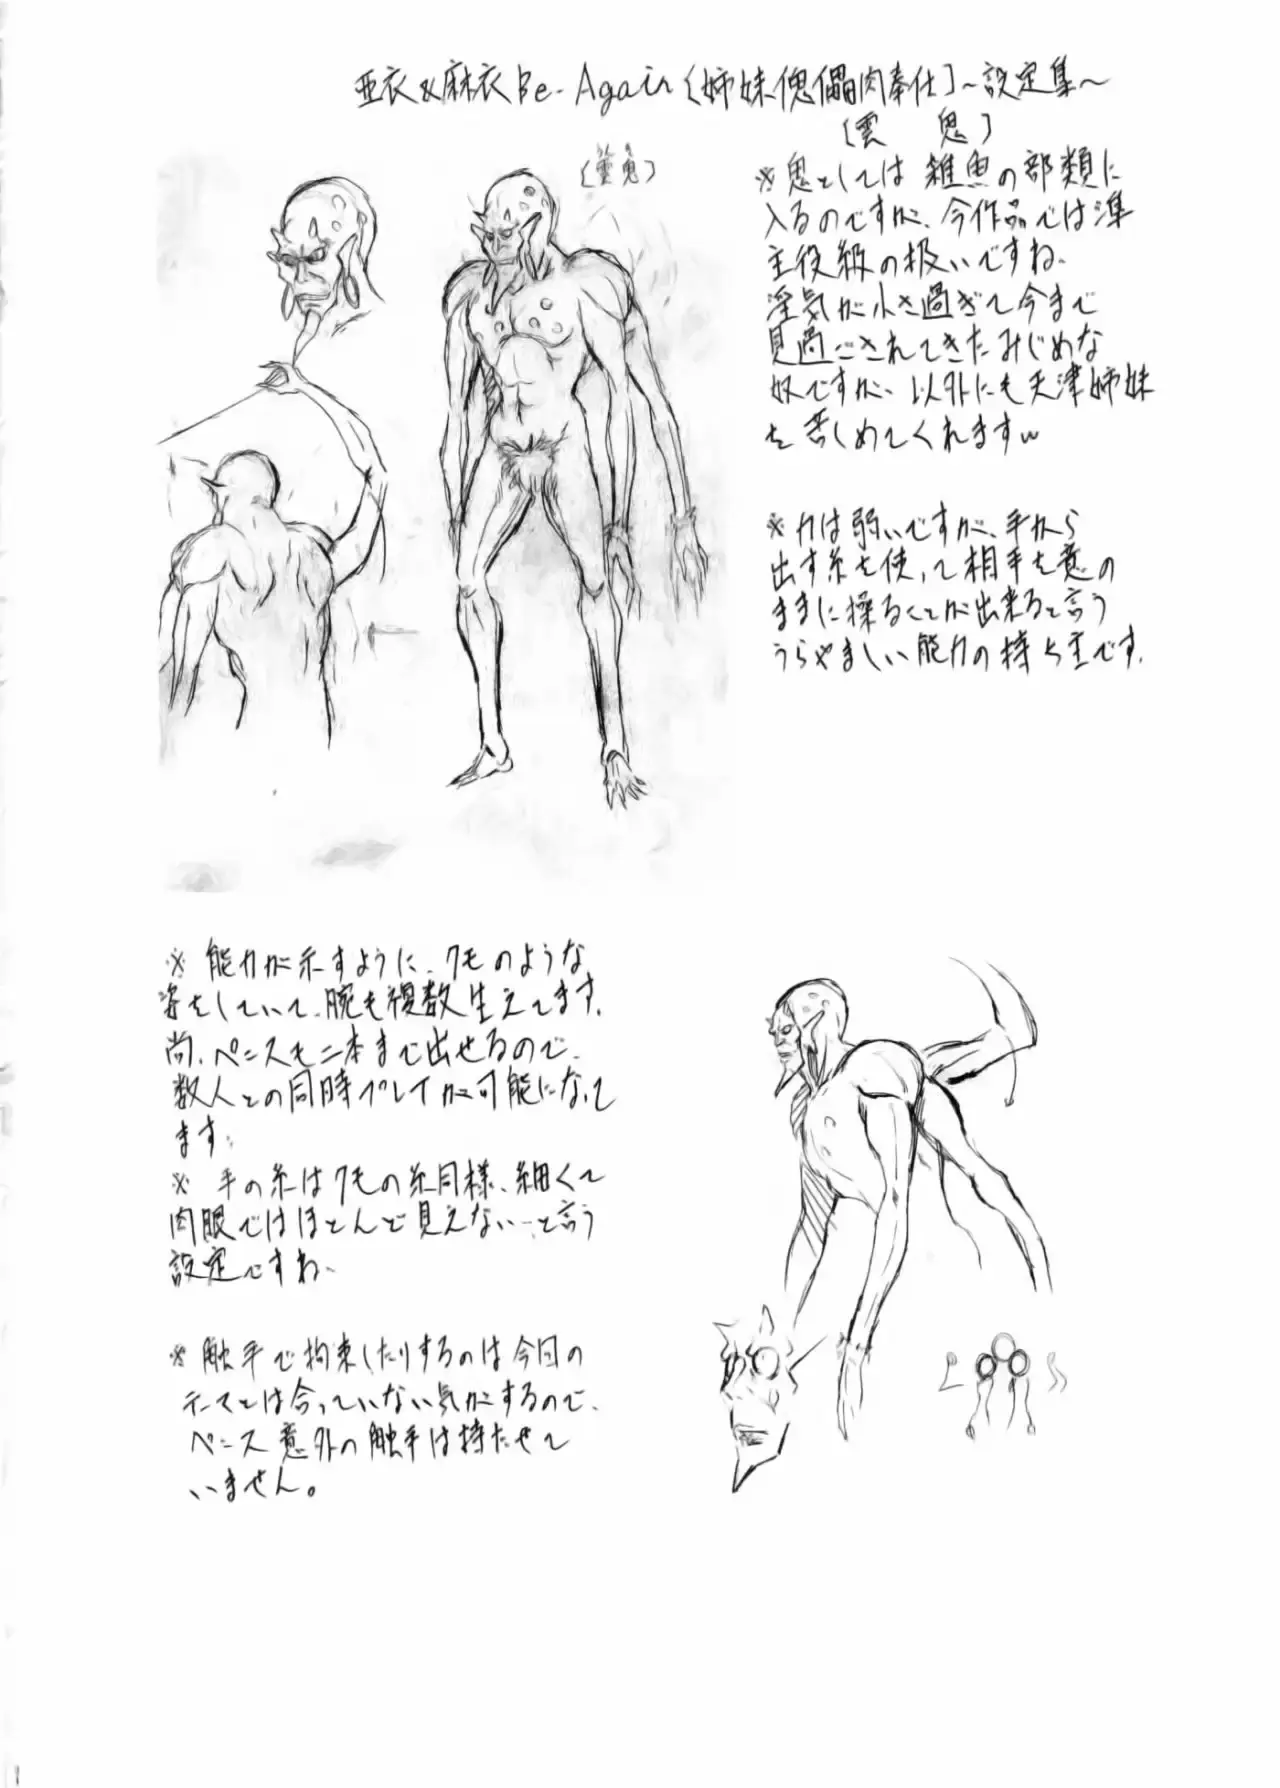 亜衣&麻衣Be-Again〔姉妹傀儡肉奉仕〕~設定集~
〔雲　鬼〕
〔雲鬼〕
※鬼としては雑魚の部類に
入るのですが、今作品では準
主役級の扱いですね、
淫気が小さ過ぎて今まで
見過ごされてきたみじめな
奴ですが、以外にも天津姉妹
を苦しめてくれますw
※力は弱いですが、手から
出す糸を使って相手を意の
ままに操ることが出来ると言う
うらやましい能力の持ち主です.
※能力が示すように、クモのような
姿をしていて、腕も複数生えてます.
尚、ペニスも二本まで出せるので、
数人との同時プレイが可能になって
ます;
※手の糸はクモの糸同様、細くて
肉眼ではほとんど見えない…と言う
設定ですね、
※触手で拘束したりするのは今回の
テーマとは合っていない気がするので、
ペニス意外の触手は持たせて
いません。